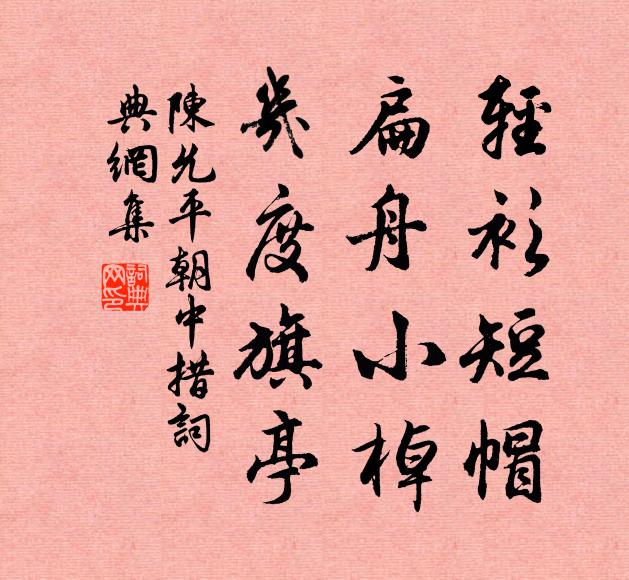 輕衫短帽
扁舟小棹
幾度旗亭
陳允平朝中措詞
典網集
詞典網印